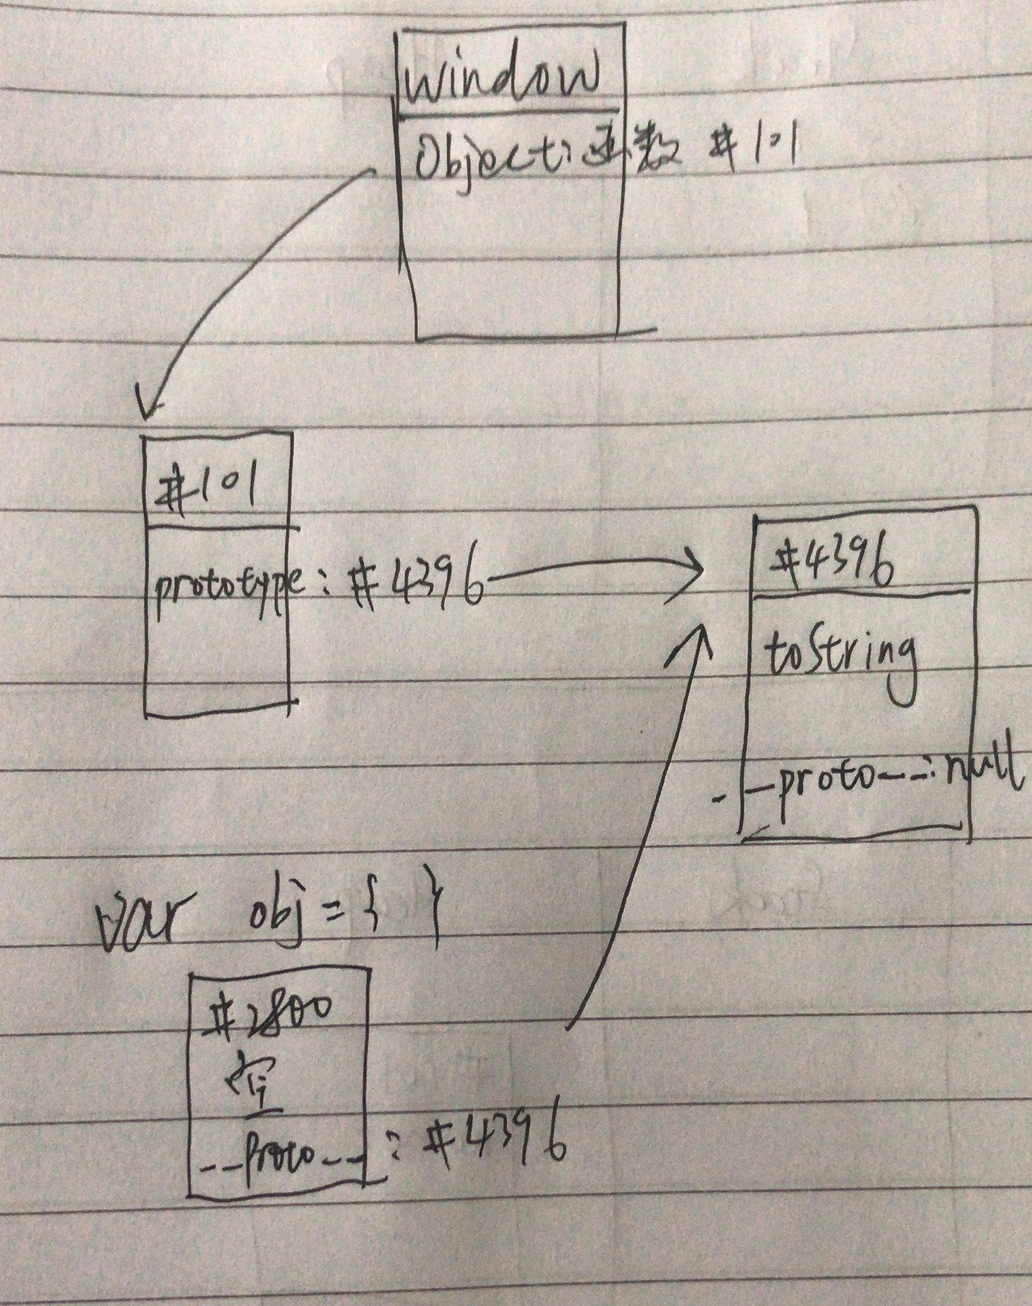 window
Object: 函数 #101
#101
prototype: #4396
#4396
toString
__proto__: null
var obj = { }
#2800
空
__proto__: #4396